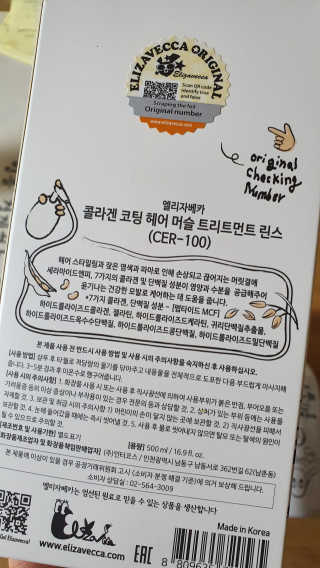 ELIZAVECCA ORIGINAL
Elizavecca
Scan QR code
Identify true
and false
Scraping the hot
Original number
www.elizavecca.com
original
Checking
Number
엘리자베카
콜라겐 코팅 헤어 머슬 트리트먼트 린스
(CER-100)
헤어 스타일링과 잦은 염색과 파마로 인해 손상되고 끊어지는 머릿결에
세라마이드엔피, 7가지의 콜라겐 및 단백질 성분이 영양과 수분을 공급해주어
윤기나는 건강한 모발로 케어하는 데 도움을 줍니다.
*7가지 콜라겐, 단백질 성분 - [펩타이드 MCF]
하이드롤라이즈드콜라겐, 젤라틴, 하이드롤라이즈드케라틴, 귀리단백질추출물,
하이드롤라이즈드옥수수단백질, 하이드롤라이즈드콩단백질, 하이드롤라이즈드밀단백질
본 제품 사용 전 반드시 사용 방법 및 사용 시의 주의사항을 숙지하신 후 사용하십시오.
[사용 방법] 샴푸 후 타월로 적당량의 물기를 닦아주고 내용물을 전체적으로 도포한 다음 부드럽게 마사지해
줍니다. 3~5분 경과 후 미온수로 헹구어줍니다.
[사용 시의 주의사항] 1. 화장품 사용 시 또는 사용 후 직사광선에 의하여 사용부위가 붉은 반점, 부어오름 또는
가려움증 등의 이상 증상이나 부작용이 있는 경우 전문의 등과 상담할 것. 2. 상처가 있는 부위 등에는 사용을
자제할 것. 3. 보관 및 취급 시의 주의사항 1) 어린이의 손이 닿지 않는 곳에 보관할 것. 2) 직사광선을 피해서
보관할 것. 4. 눈에 들어갔을 때에는 즉시 씻어낼 것. 5. 사용 후 물로 씻어내지 않으면 탈모 또는 탈색의 원인이
될 수 있으므로 주의할 것.
[제조번호 및 사용기한] 별도표기 [용량] 500 ml / 16.9 fl. oz.
[화장품제조업자 및 화장품책임판매업자] (주)인터코스 / 인천광역시 남동구 남동서로 362번길 62(남촌동)
본 제품에 이상이 있을 경우 공정거래위원회 고시 (소비자 분쟁 해결 기준)에 의거 보상해 드립니다.
소비자 상담실 : 02-564-3009
엘리자베카는 엄선된 원료로 믿을 수 있는 상품을 생산합니다
Elizavecca!
www.elizavecca.com
EAC
Made in Korea